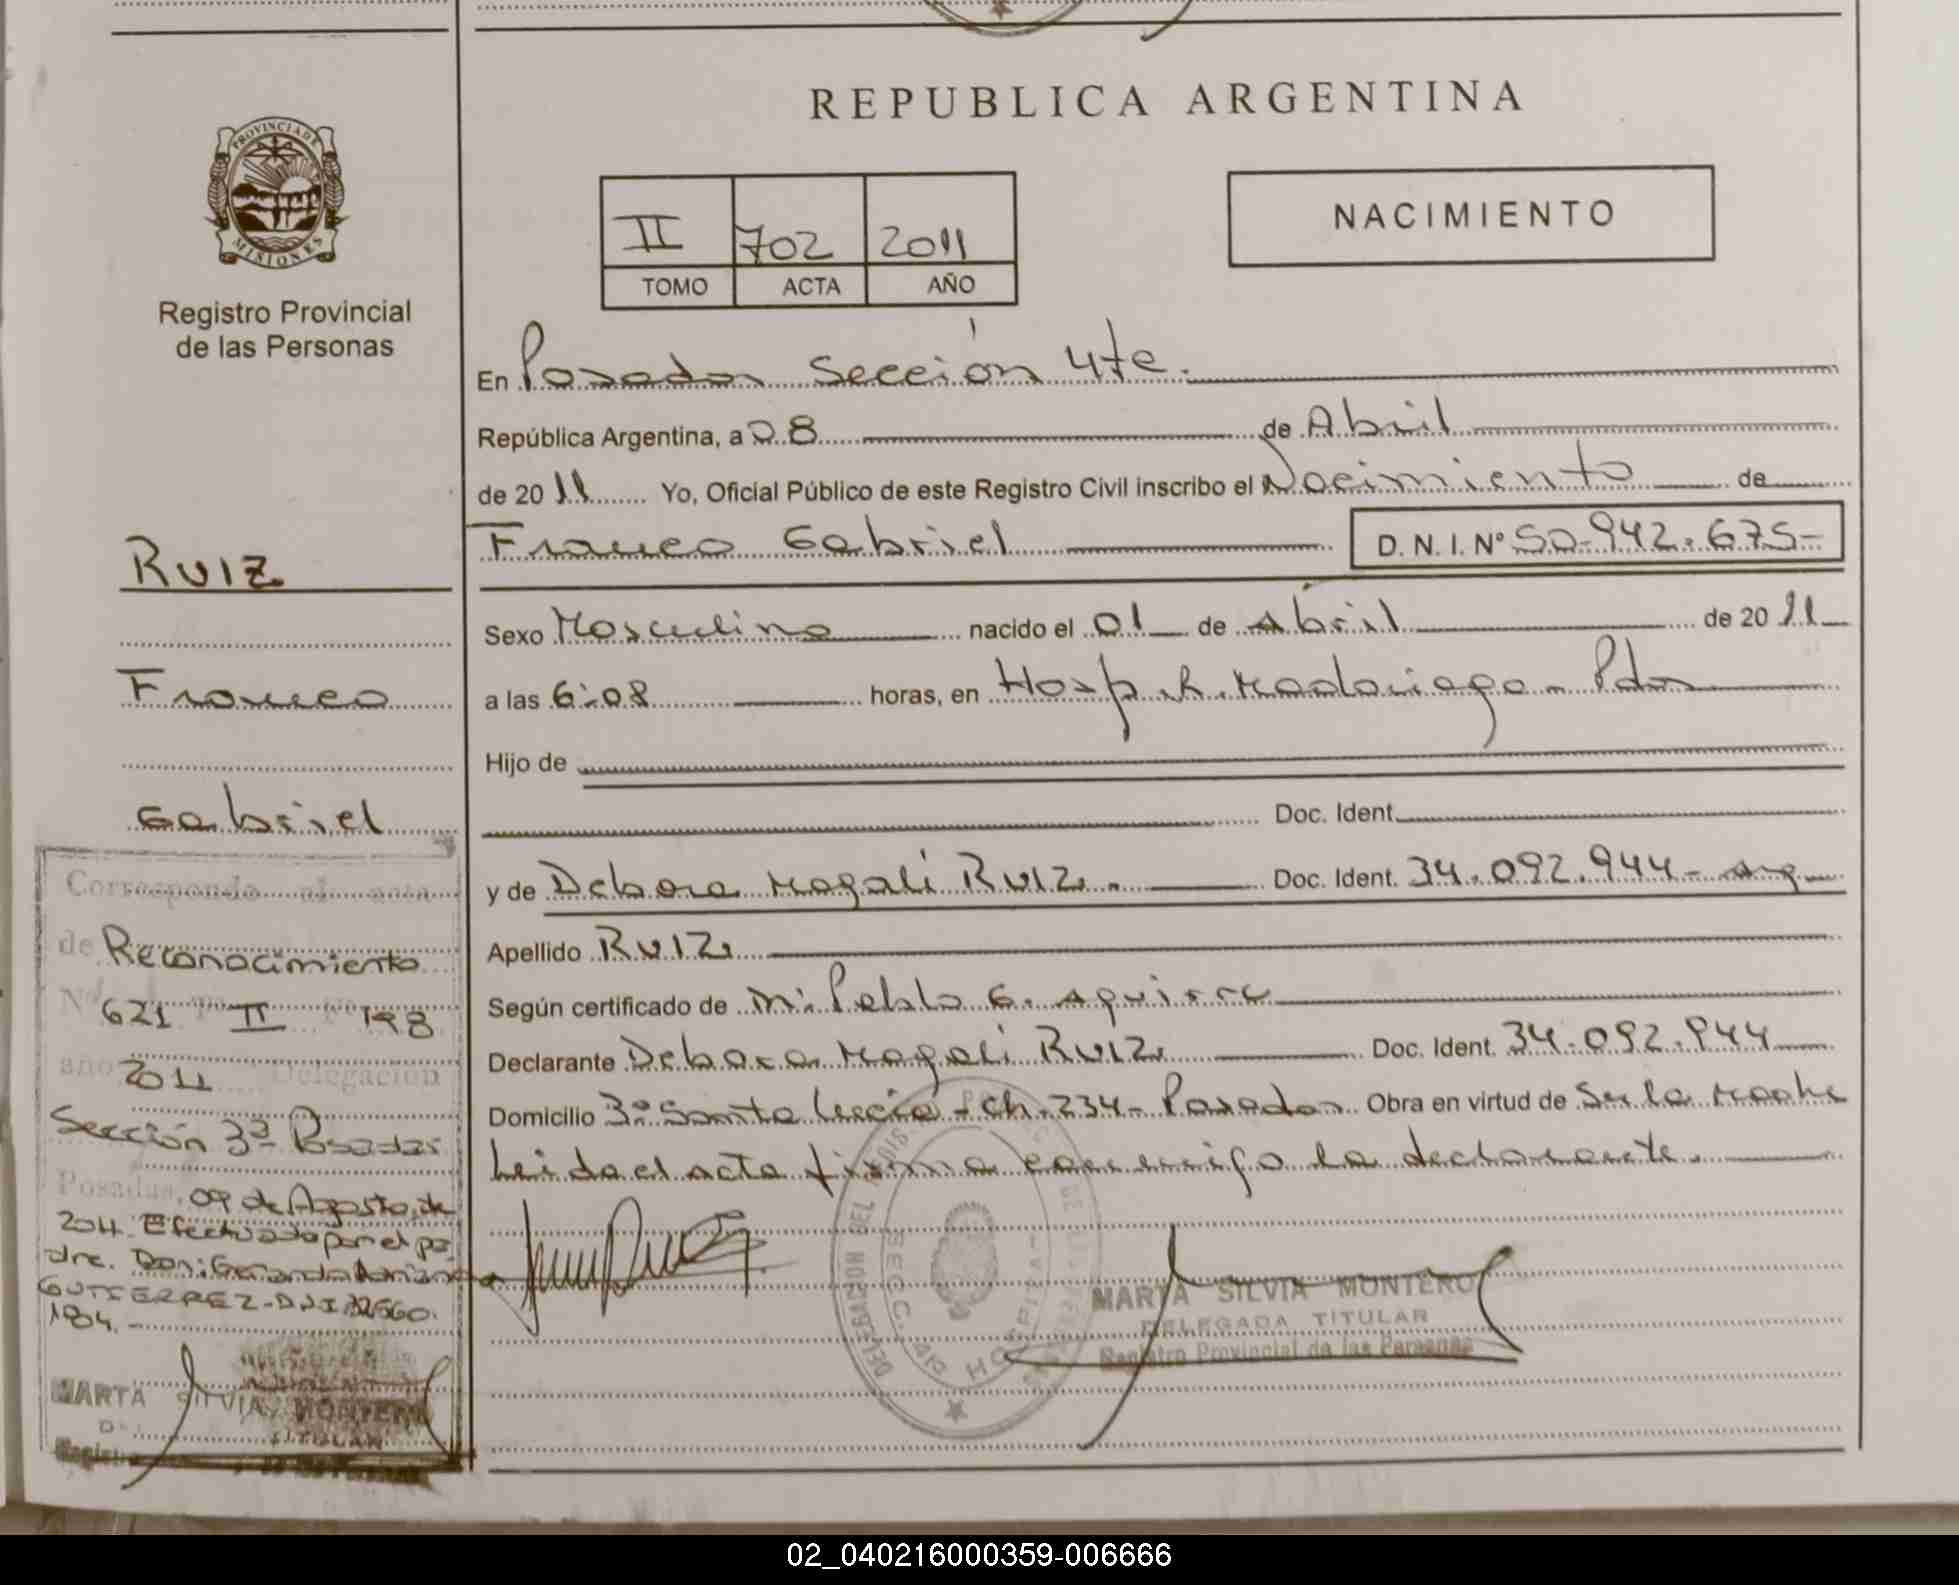 REPUBLICA ARGENTINA
PROVINCIA DE MISIONES
Registro Provincial
de las Personas
II 702 2011
TOMO ACTA AÑO
NACIMIENTO
En Posadas Sección 4te.
República Argentina, a 08 de Abril
de 2011 Yo, Oficial Público de este Registro Civil inscribo el Nacimiento de
Franco Gabriel D.N.I. Nº 50-942.675-
Sexo Masculino nacido el 01 de Abril de 2011
a las 6:08 horas, en Hosp. R. Madariaga - Pdas
Hijo de
Doc. Ident.
y de Debora Magali RUIZ.- Doc. Ident. 34.092.944- Arg
Apellido RUIZ
Según certificado de M: Pablo G. Aguirre
Declarante Debora Magali RUIZ Doc. Ident. 34.092.944
Domicilio Bº Santa Lucia - Ch. 234- Posadas Obra en virtud de Ser la Madre
Leida el acta firma conmigo la declarante.
MARTA SILVIA MONTERO
DELEGADA TITULAR
Registro Provincial de las Personas
SECC. 4ta HOSPITAL
RUIZ
Franco
Gabriel
Corresponde al acta
de Reconocimiento
Nº 621 Tº II Fº 198
año 2011 Delegación
Sección 3ª Posadas
Posadas, 09 de Agosto de
2011. Efectuado por el pa-
dre. Don: Gerardo Adrian
GUTIERREZ-DNI 32560.
184.-
MARTA SILVIA MONTERO
TITULAR
02_040216000359-006666